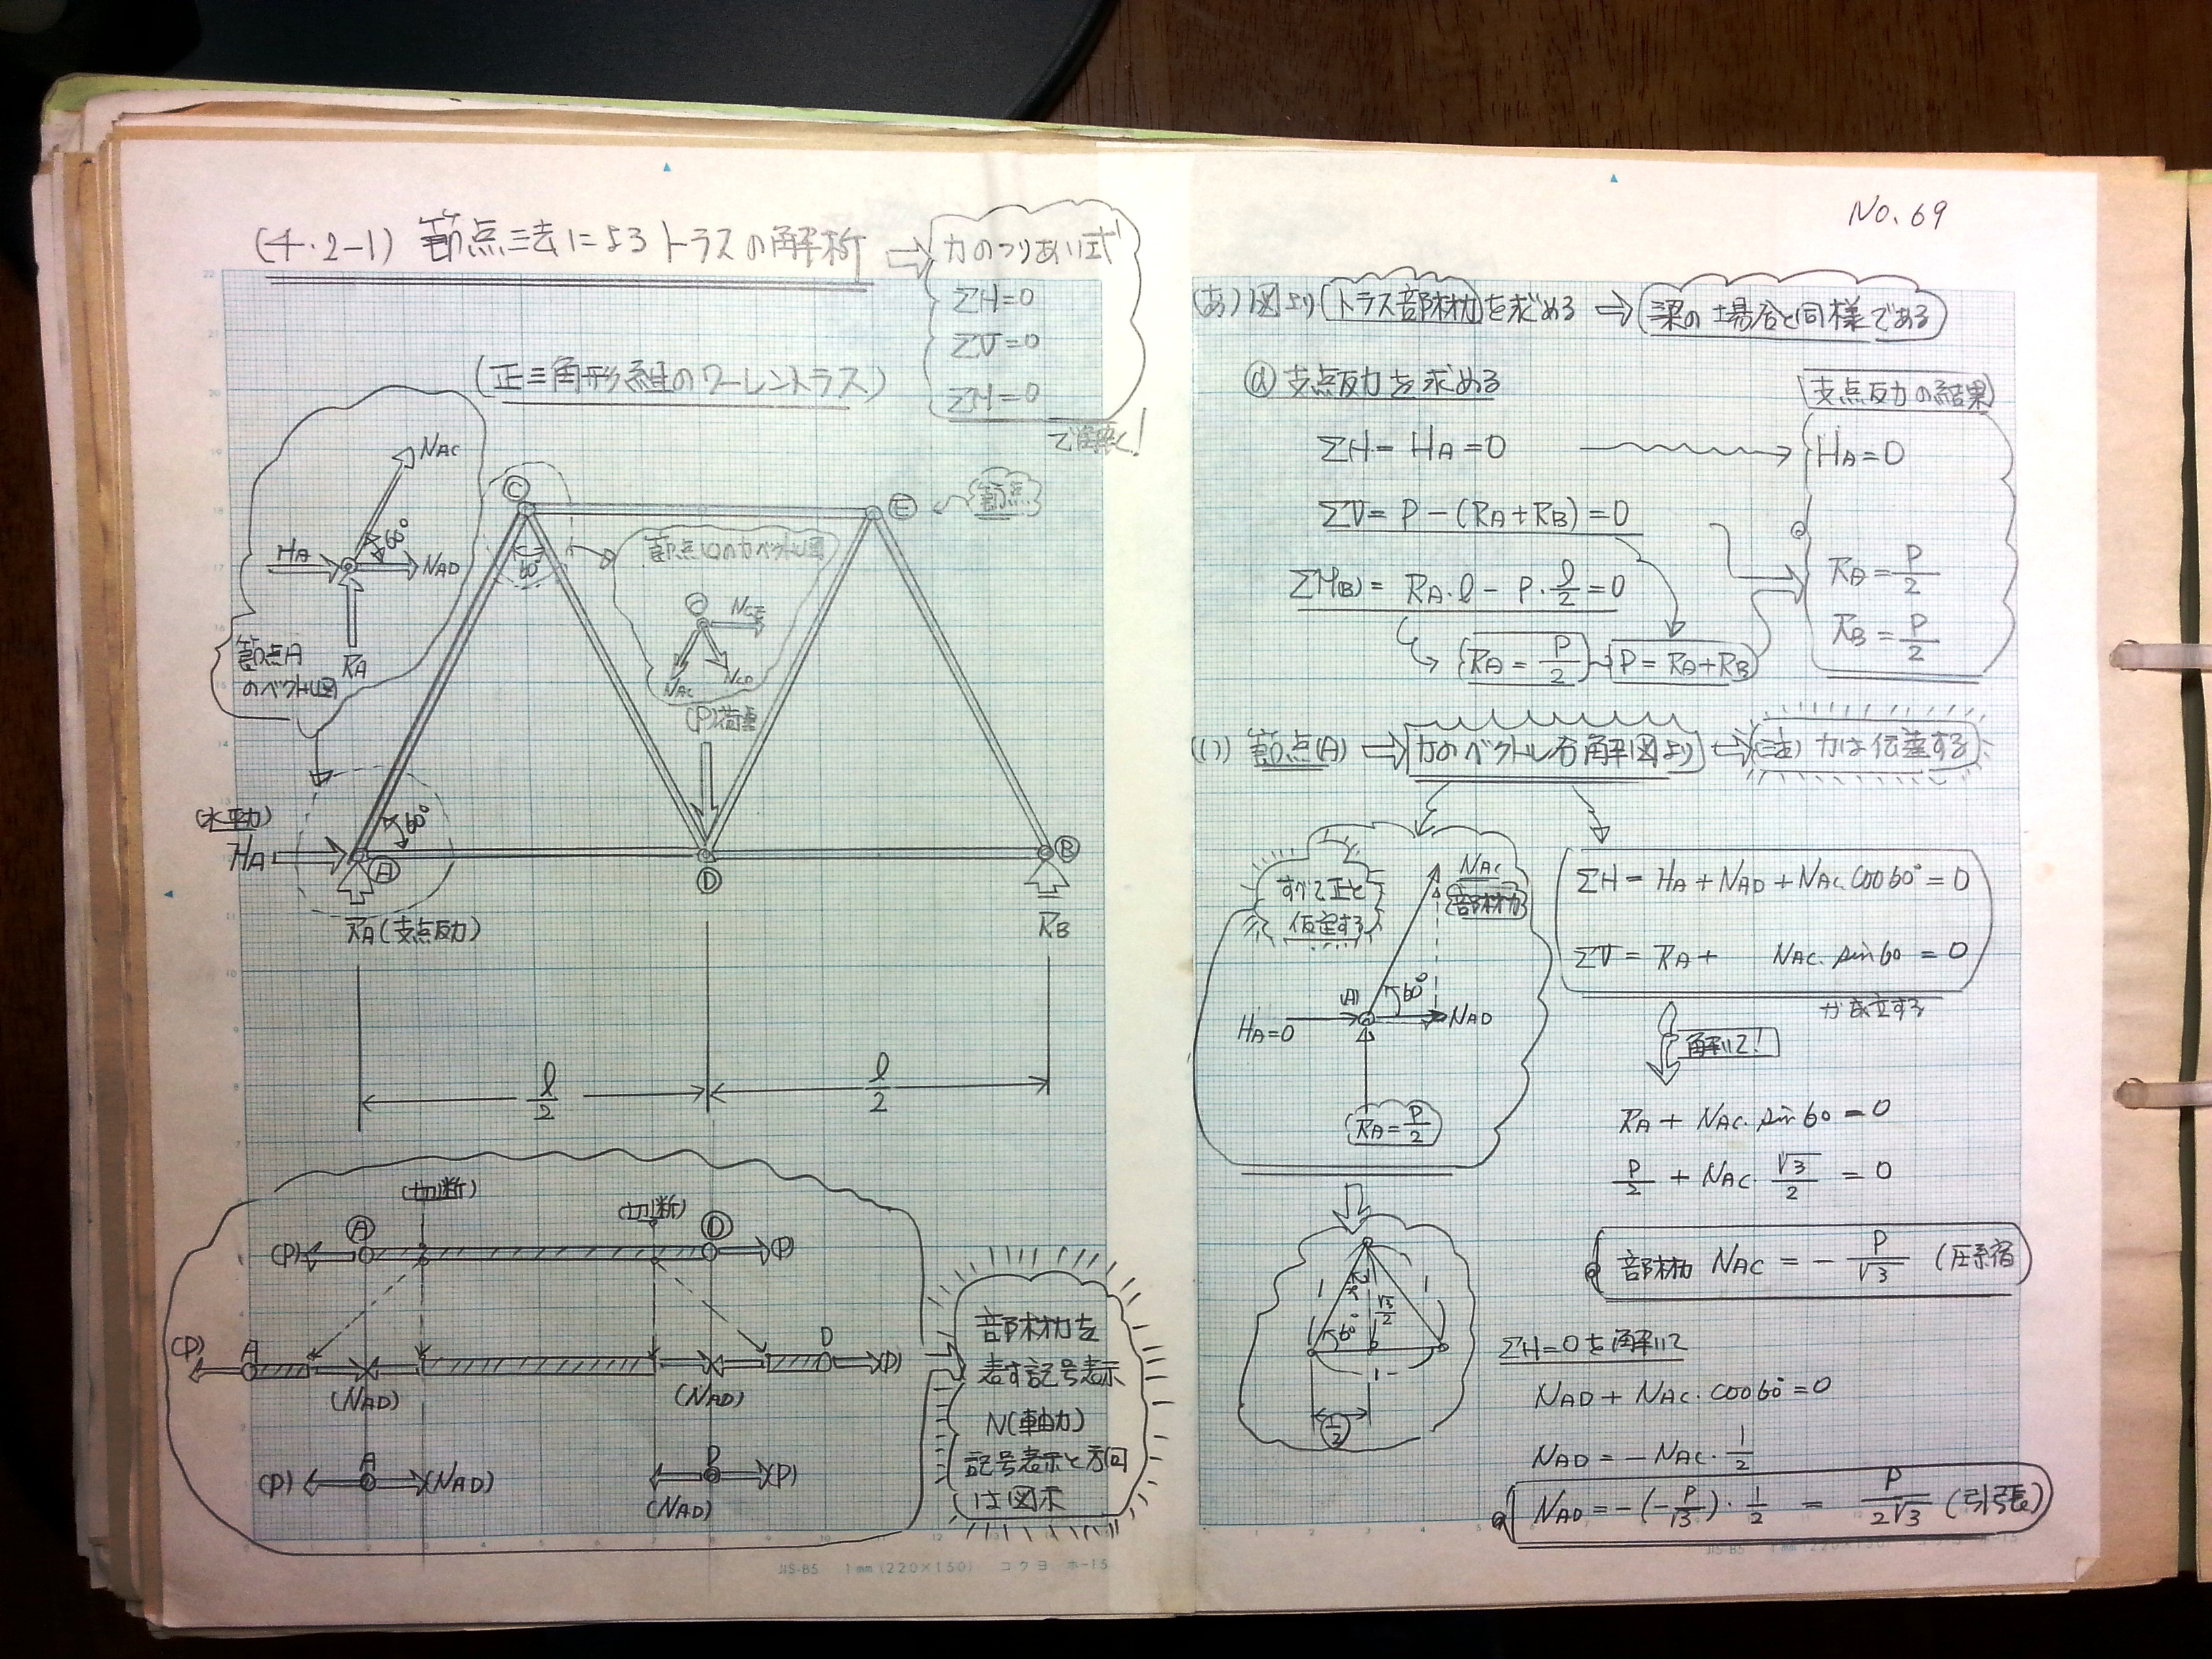 (4.2-1) 節点法によるトラスの解析 ⇒ 力のつりあい式
ΣH=0
ΣV=0
ΣM=0
で解く!
(正三角形組のワーレントラス)
NAC
60°
HA
NAD
RA
節点A
のベクトル図
C
E
節点
60°
節点(C)の力ベクトル図
C
NCE
NAC
NCD
(P)荷重
(水平力)
HA
60°
A
D
B
RA(支点反力)
RB
l/2
l/2
(切断)
(切断)
A
D
(P)
(P)
(P)
A
D
(P)
(NAD)
(NAD)
(P)
A
(NAD)
D
(P)
(NAD)
部材力を
表す記号表示
N(軸力)
記号表示と方向
は図示
JIS-B5 1mm(220×150) コクヨ ホ-15
No.69
(あ)図より トラス部材力 を求める ⇒ 梁の場合と同様である
ⓐ 支点反力を求める
支点反力の結果
ΣH= HA=0
HA=0
ΣV= P-(RA+RB)=0
ΣM(B)= RA・l - P・l/2=0
RA=P/2
RB=P/2
RA=P/2
P=RA+RB
(い) 節点(A) ⇒ 力のベクトル分解図より ⇒ (注) 力は伝達する
すべて正と
仮定する
NAC
部材力
(A)
60°
HA=0
NAD
RA=P/2
ΣH= HA+NAD+NAC.cos60°=0
ΣV= RA+ NAC.sin60 = 0
が成立する
解いて!
RA + NAC.sin60 = 0
P/2 + NAC.√3/2 = 0
部材力 NAC = - P/√3 (圧縮)
1
1
√3/2
60°
1
1/2
ΣH=0を解いて
NAD + NAC.cos60°=0
NAD=-NAC.1/2
NAD=-(-P/√3)・1/2 = P/2√3 (引張)
JIS-B5 1mm(220×150) コクヨ ホ-15